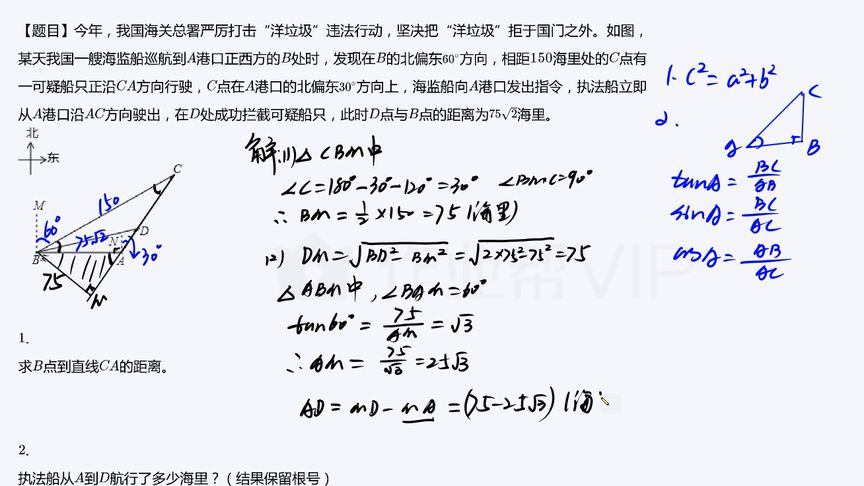 【题目】今年，我国海关总署严厉打击“洋垃圾”违法行动，坚决把“洋垃圾”拒于国门之外。如图，
某天我国一艘海监船巡航到A港口正西方的B处时，发现在B的北偏东60°方向，相距150海里处的C点有
一可疑船只正沿CA方向行驶，C点在A港口的北偏东30°方向上，海监船向A港口发出指令，执法船立即
从A港口沿AC方向驶出，在D处成功拦截可疑船只，此时D点与B点的距离为75√2海里。
北
东
M
60°
150
C
75√2
N
D
30°
B
A
75
M
1.
求B点到直线CA的距离。
2.
执法船从A到D航行了多少海里？（结果保留根号）
解:(1)△CBM中
∠C=180°-30°-120°=30° ∠BMC=90°
∴BM=1/2×150=75(海里)
(2) DM=√BD²-BM²=√2×75²-75²=75
△ABM中,∠BAM=60°
tan60°=75/AM=√3
∴AM=75/√3=25√3
AD=MD-MA=(75-25√3)(海
1. C²=a²+b²
2.
C
A
B
tanA=BC/AB
sinA=BC/AC
cosA=AB/AC